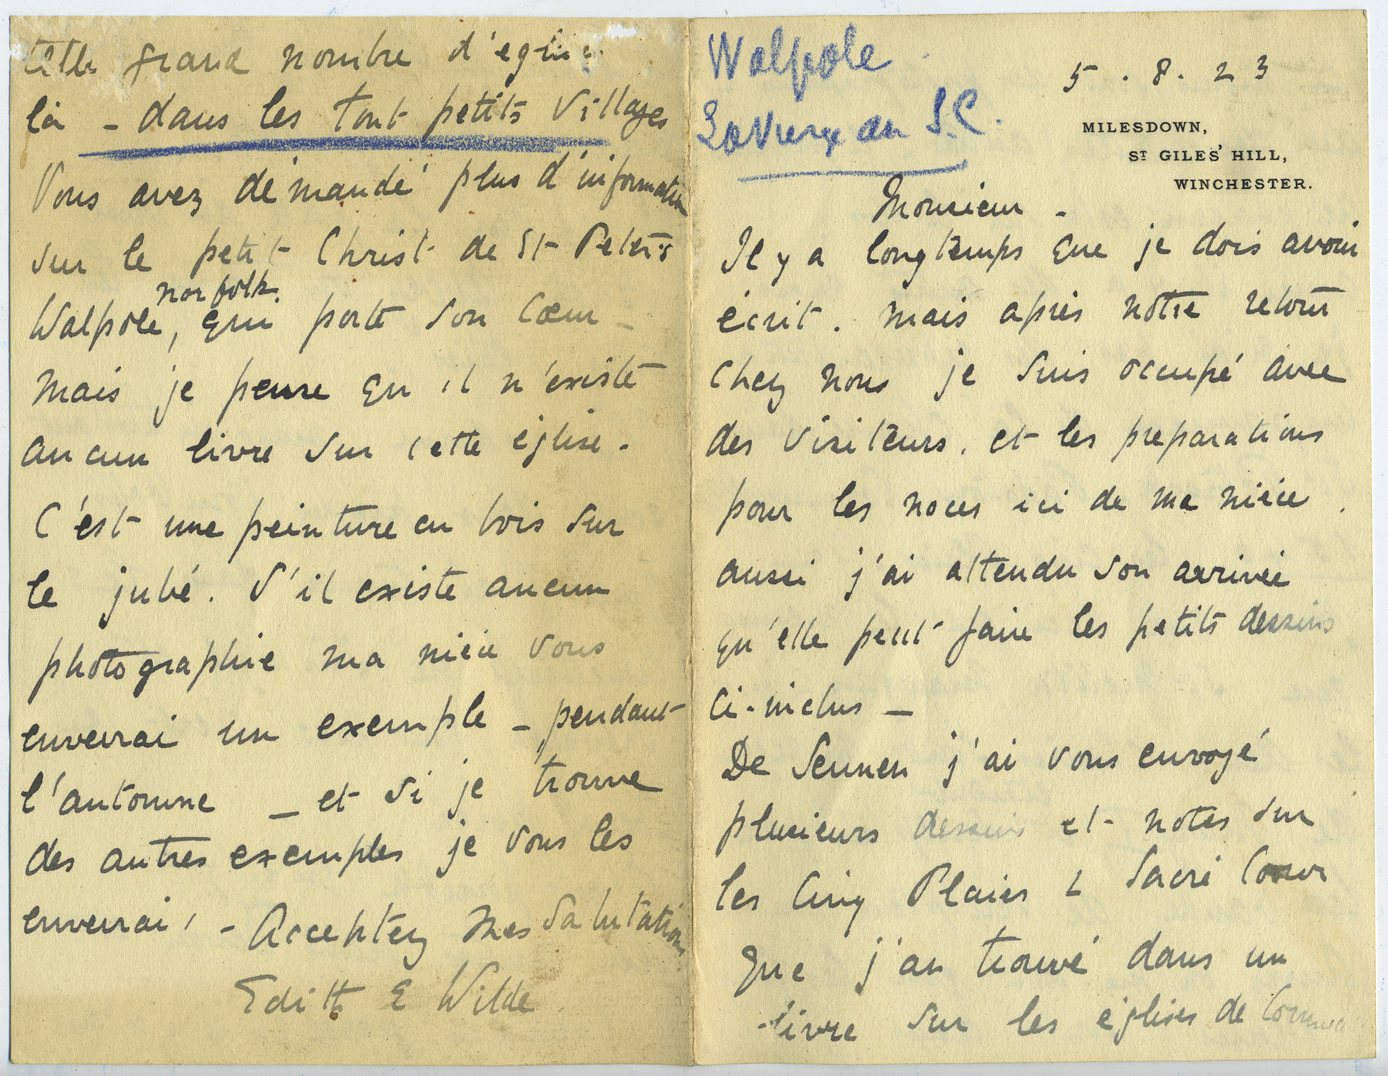 Walpole
La Vierge au S.C.
5 . 8 . 23
MILESDOWN,
ST GILES' HILL,
WINCHESTER.
Monsieur -
Il y a longtemps que je dois avoir
écrit. Mais après notre retour
chez nous je suis occupé avec
des visiteurs. et les preparations
pour les noces ici de ma nièce.
aussi j'ai attendu son arrivée
qu'elle peut faire les petits dessins
ci-inclus -
De Sennen j'ai vous envoyé
plusieurs dessins et notes sur
les Cinq Plaies & Sacré Coeur
que j'an trouvé dans un
livre sur les églises de
grand nombre d'eglises
là - dans les tout petits villages
Vous avez demandé plus d'information
sur le petit Christ de St Peters
Walpole, norfolk. qui porte son Cœur -
Mais je pense qu'il n'existe
aucun livre sur cette église.
C'est une peinture en bois sur
le jubé. S'il existe aucun
photographie ma nièce vous
enverrai un exemple - pendant
l'automne - et si je trouve
des autres exemples je vous les
enverrai, - Acceptez mes salutations
Edith E Wilde